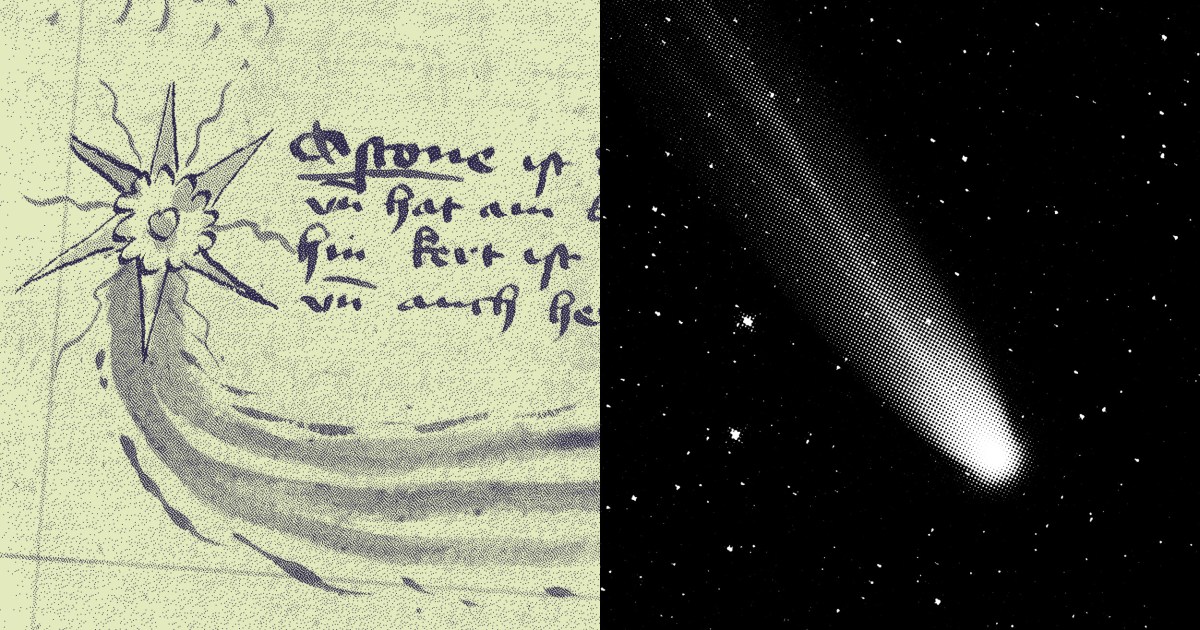 Astone ist
vn hat ain
hin kert ist
vn auch he